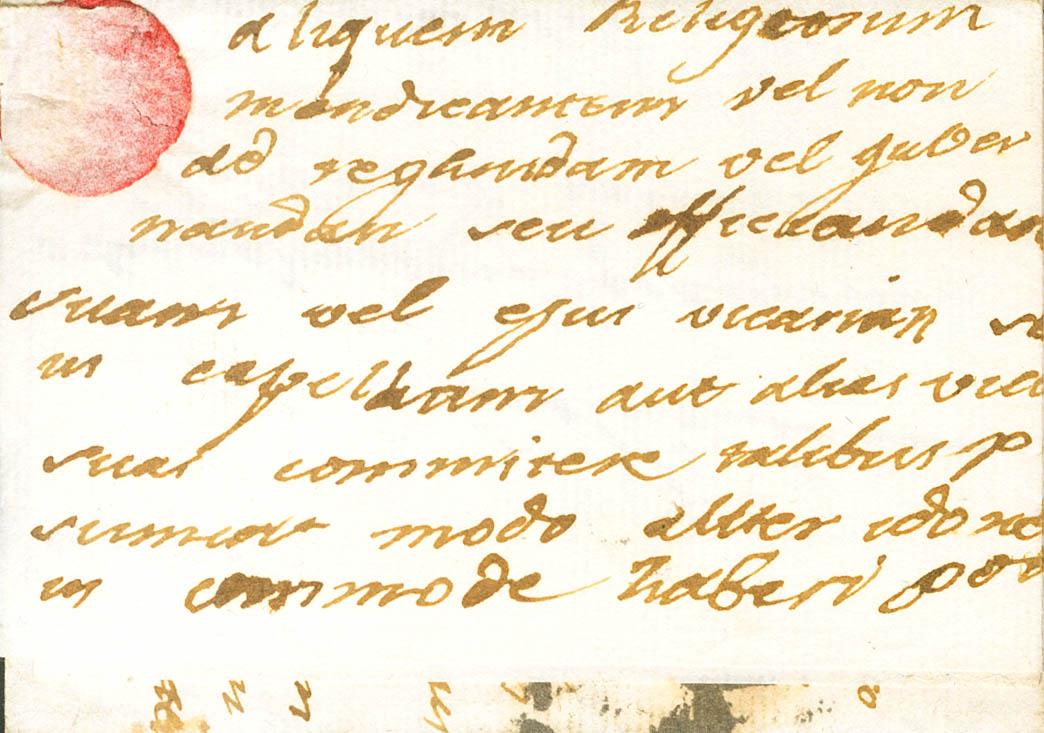 aliquem Religeorum
mendicantem vel non
ad reghindam vel guber
nandan seu officiandan
suam vel ejus vicarian
in capellanm aut alias vica
suas commitere talibus p
sumat modo aliter idone
us commode haberi pot